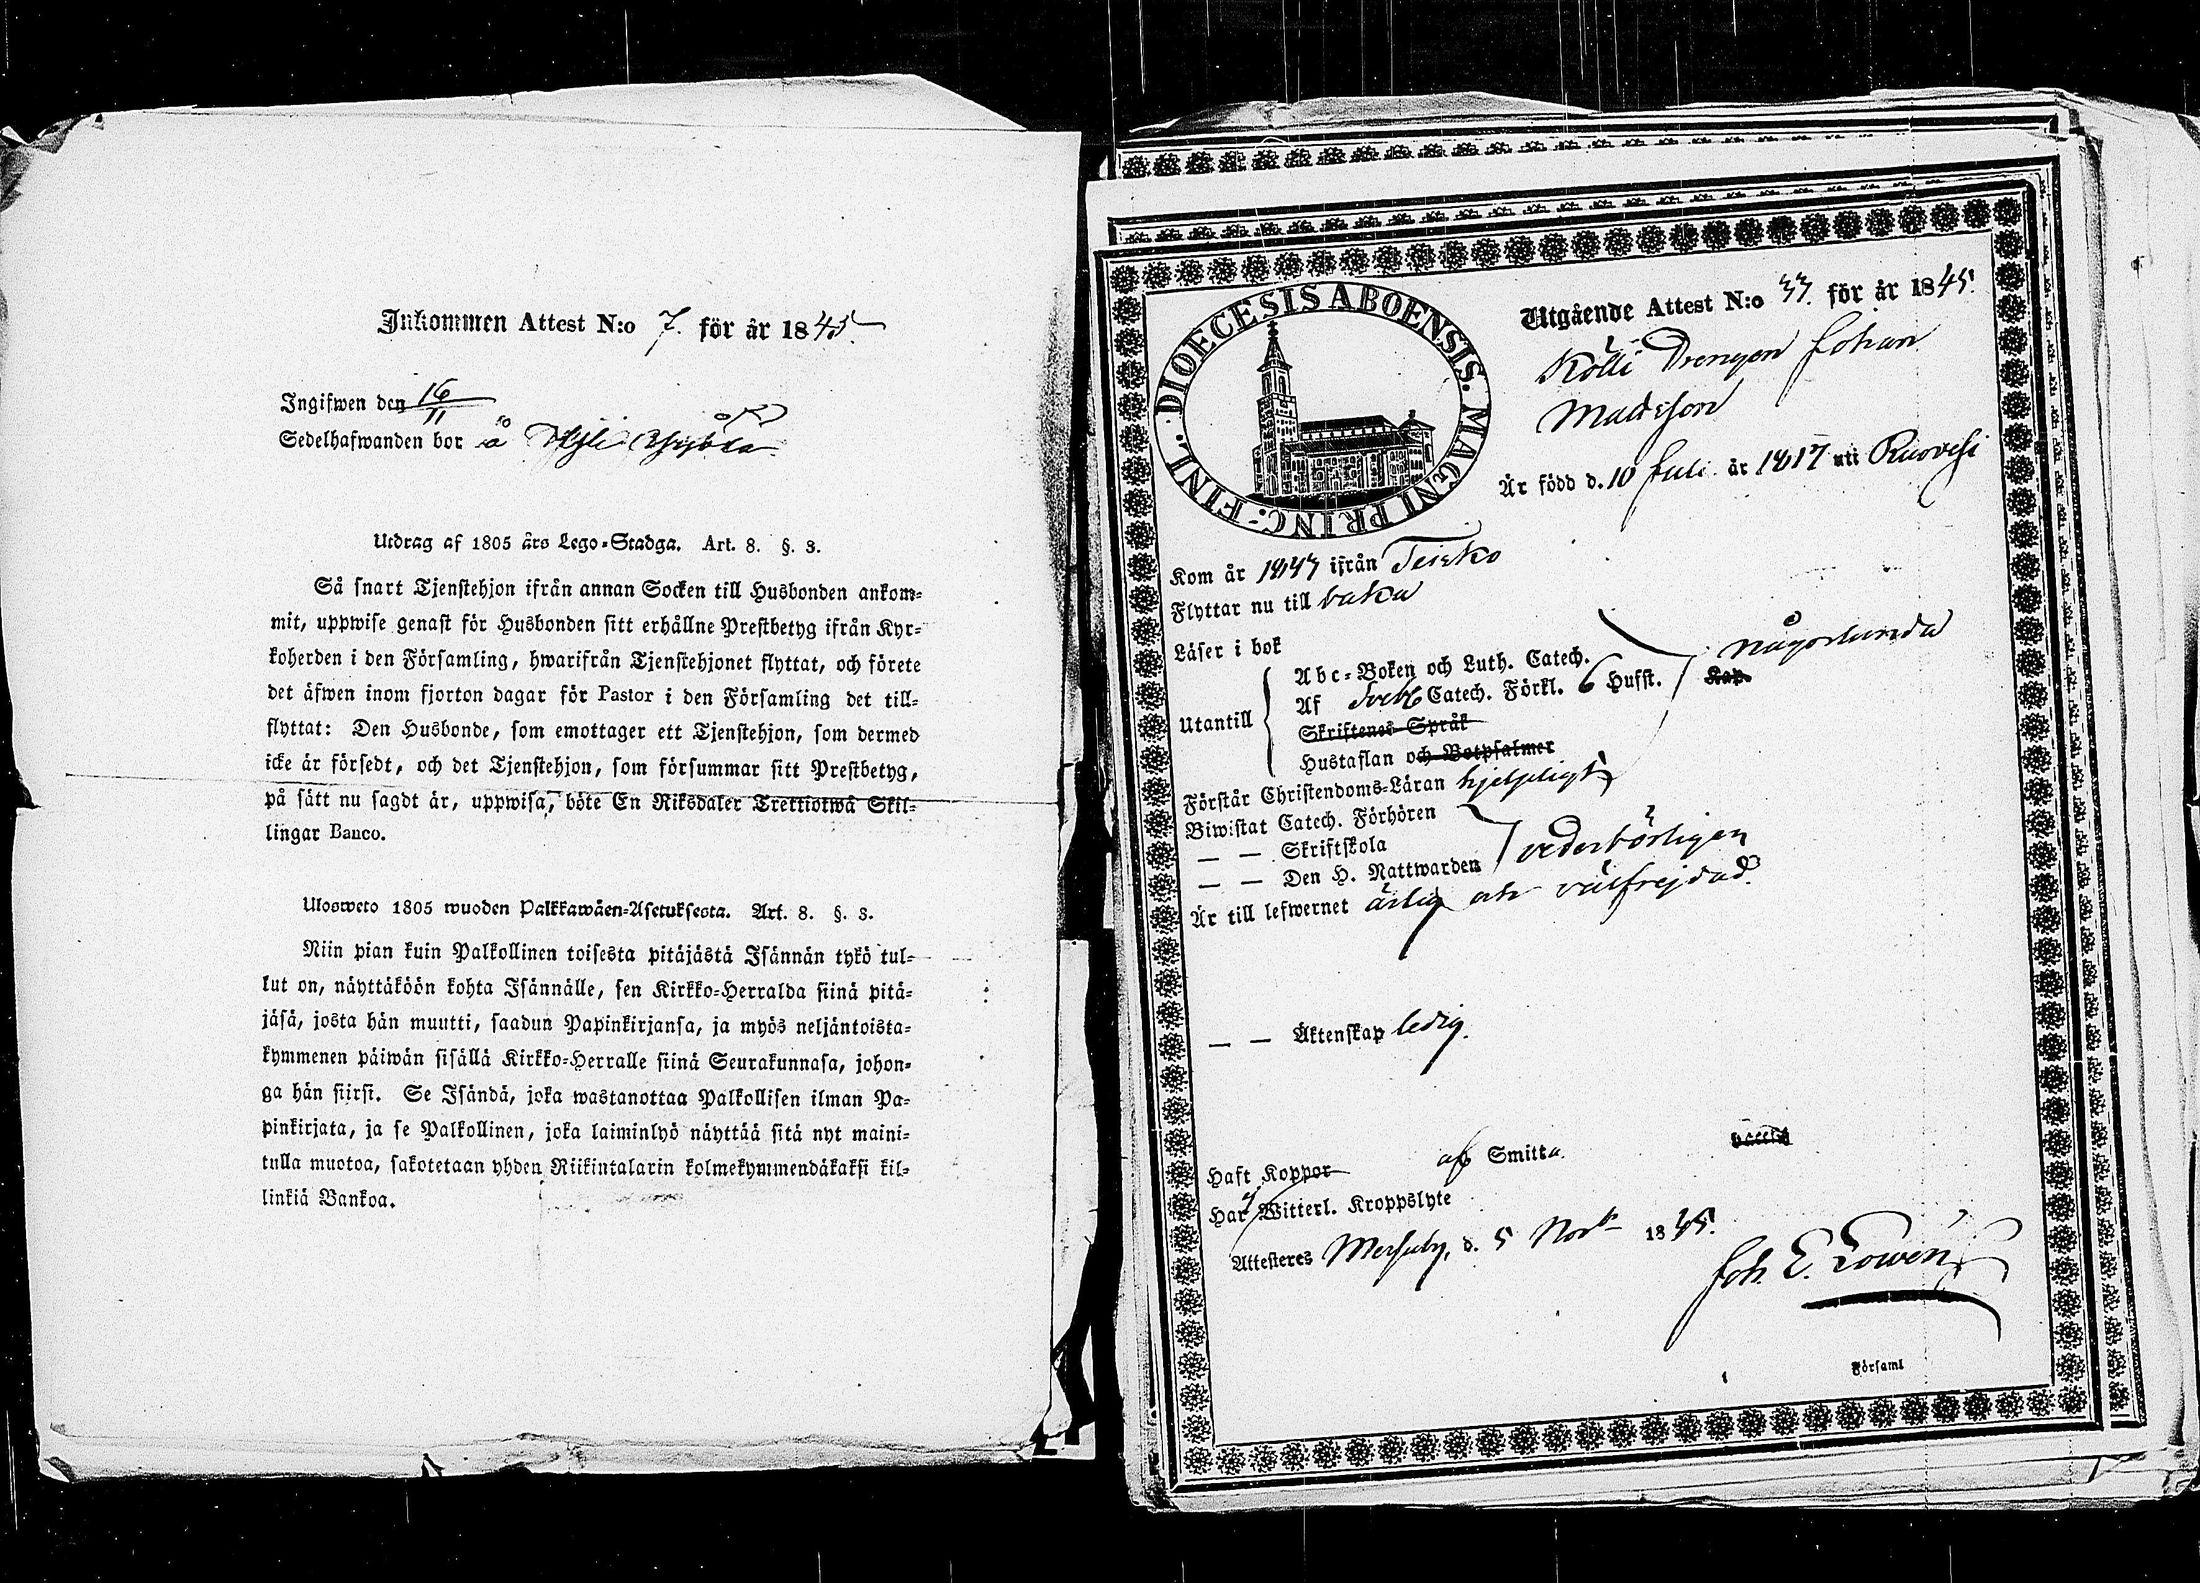 Inkommen Attest N:o 7. för år 1845.
Ingifwen den 16/11
Sedelhafwanden bor å
Utdrag af 1805 års Lego-Stadga. Art. 8. §. 3.
Så snart Tjenstehjon ifrån annan Socken till Husbonden ankom-
mit, uppwise genast för Husbonden sitt erhållne Prestbetyg ifrån Kyr-
koherden i den Församling, hwarifrån Tjenstehjonet flyttat, och förete
det äfwen inom fjorton dagar för Pastor i den Församling det till-
flyttat: Den Husbonde, som emottager ett Tjenstehjon, som dermed
icke är försedt, och det Tjenstehjon, som försummar sitt Prestbetyg,
på sätt nu sagdt är, uppwisa, böte En Riksdaler Trettiotwå Skil-
lingar Banco.
Ulosweto 1805 wuoden Palkkawäen-Asetuksesta. Art. 8. §. 3.
Niin pian kuin Palkollinen toisesta pitäjästä Isännän tykö tul-
lut on, näyttäköön kohta Isännälle, sen Kirkko-Herralda siinä pitä-
jäsä, josta hän muutti, saadun Papinkirjansa, ja myös neljäntoista-
kymmenen päiwän sisällä Kirkko-Herralle siinä Seurakunnasa, johon-
ga hän siirsi. Se Isändä, joka wastanottaa Palkollisen ilman Pa-
pinkirjata, ja se Palkollinen, joka laiminlyö näyttää sitä nyt maini-
tulla muotoa, sakotetaan yhden Riikintalarin kolmekymmendäkaksi kil-
linkiä Bankoa.
DIOECESIS ABOENSIS. MAGNI PRINC. FINL.
Utgående Attest N:o 33. för år 1845.
Kölli Drengen Johan
Mattsson
Är född d. 10 Juli år 1817 uti Ruovesi
Kom år 1843 ifrån Teisko
Flyttar nu till baka
Läser i bok
Abc-Boken och Luth. Catech. någorlunda
Utantill
Af Sveb Catech. Förkl. 6 Hufst. Kap.
Skriftenes Språk
Hustaflan och Botpsalmer
Förstår Christendoms-Läran hjelpligt
Biwistat Catech. Förhören
— — Skriftskola vederbörligen
— — Den H. Nattwarden
Är till lefwernet ärlig och välfrejdad.
— — Äktenskap ledig.
Haft Koppor af Smitta.
Har Witterl. Kroppslyte
Attesteres Messuby, d. 5 Nov. 1845.
Joh. E. Lowén
Församl